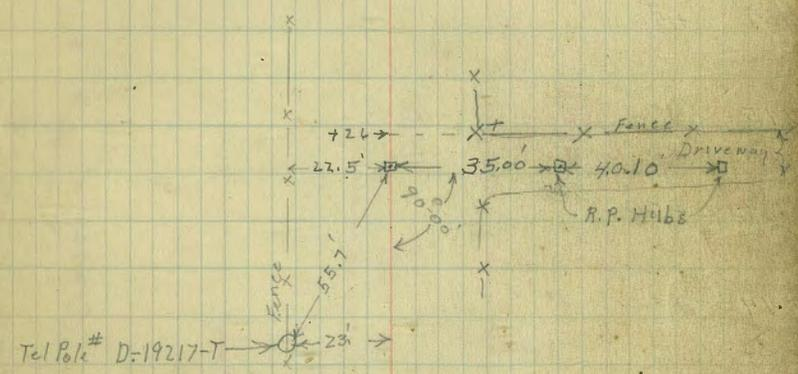 +26
Fence
Driveway
22.5'
35.00'
40.10'
90°00'
R.P. Hubs
55.7'
Fence
Tel Pole # D-19217-T
23'